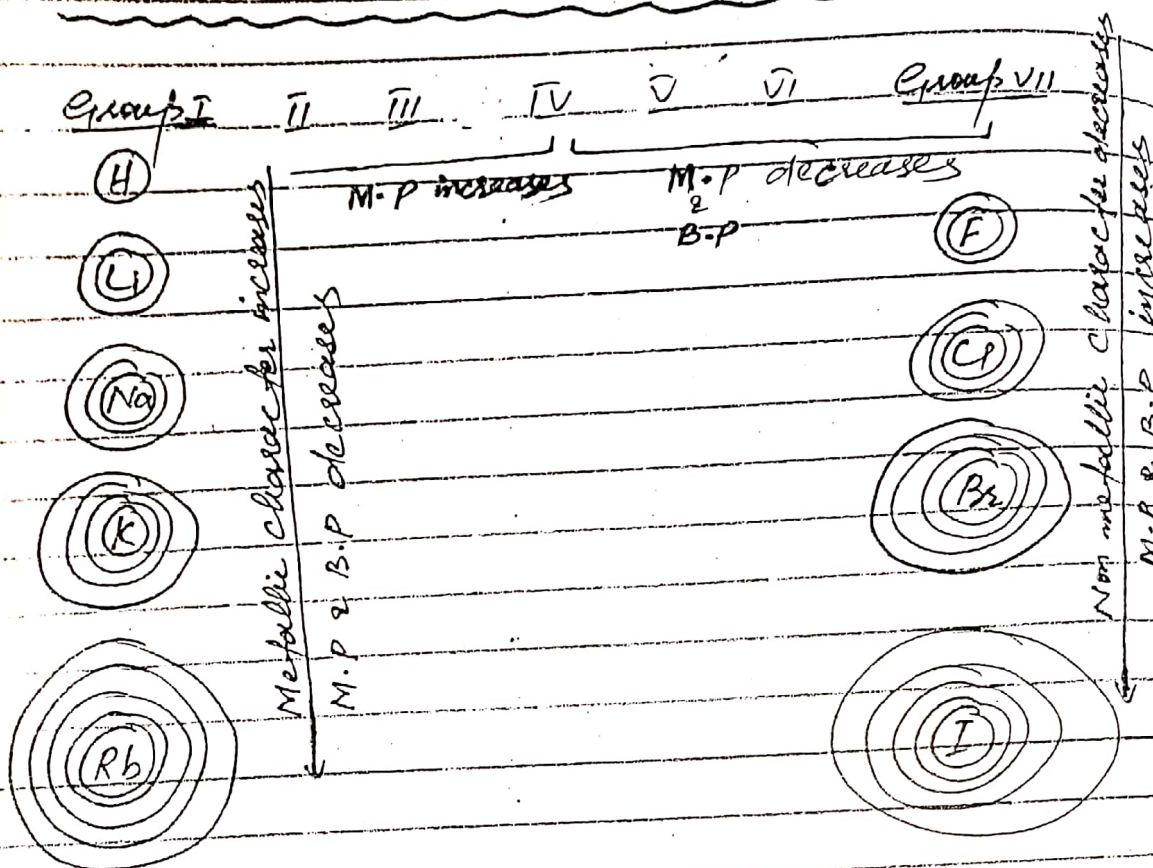 Group I II III IV V VI Group VII
M.P increases
M.P decreases
&
B.P
H
Li
Na
K
Rb
Metallic character increases
M.P & B.P decreases
F
Cl
Br
I
Non metallic character decreases
M.P & B.P increases